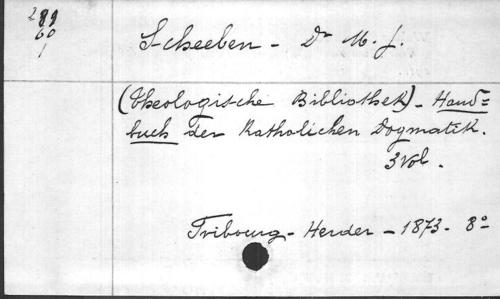 289
60
1
Scheeben - Dr M. J.
(Theologische Bibliothek) - Hand=
buch der Katholichen Dogmatik.
3 Vol.
Fribourg - Herder - 1873 - 8°